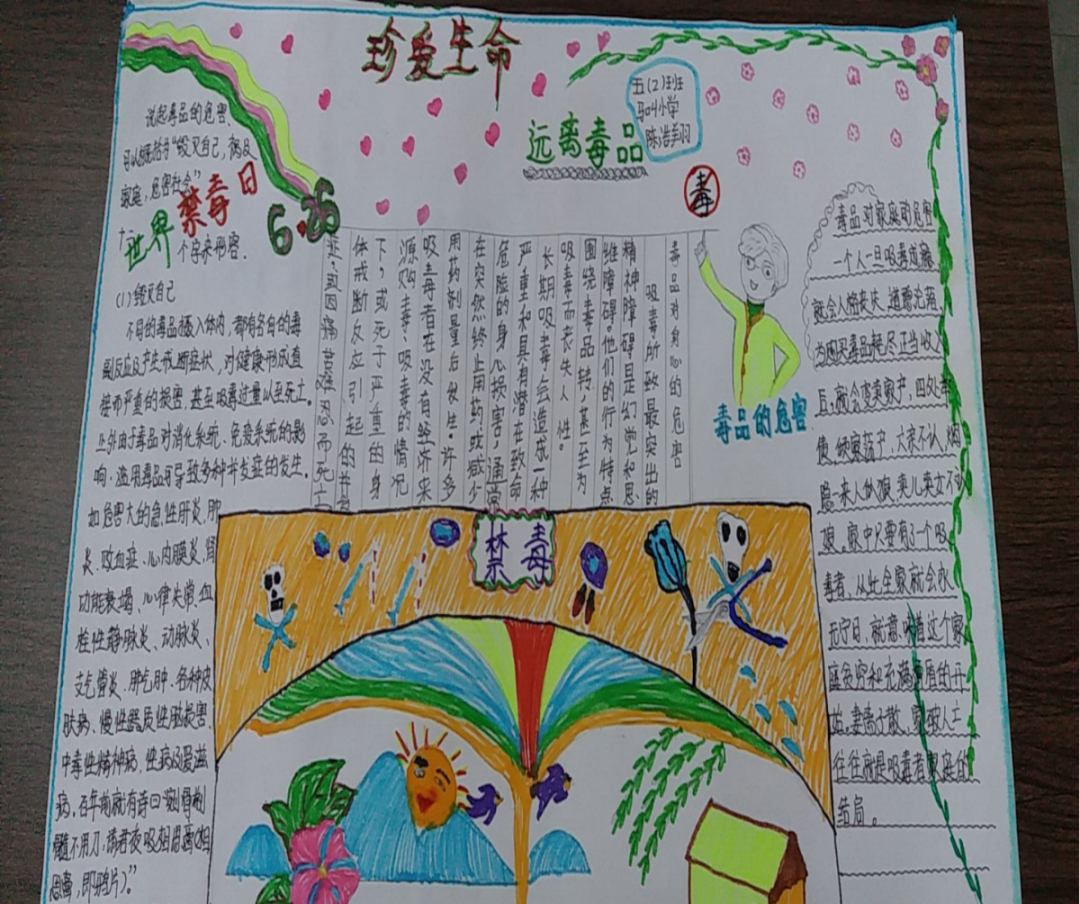 珍爱生命
远离毒品
五(2)班
马叫小学
陈浩翔
说起毒品的危害,
可以概括为“毁灭自己,祸及
家庭,危害社会”
十二
个字来形容.
世界禁毒日
6.26
(1)毁灭自己
不同的毒品摄入体内,都有各自的毒
副反应及产生戒断症状,对健康形成直
接而严重的损害.甚至吸毒过量以至死亡.
此外由于毒品对消化系统.免疫系统的影
响.滥用毒品可导致多种并发症的发生.
如危害大的急性肝炎,肺
炎.败血症.心内膜炎,肾
功能衰竭、心律失常,血
栓性静脉炎、动脉炎、
支气管炎、肺气肿.各种皮
肤病、慢性器质性脑损害.
中毒性精神病、性病及爱滋
病.百年前就有诗曰“剜骨剃
髓不用刀,请君夜吸相思膏(相
思膏,即鸦片)。”
毒品对身心的危害
吸毒所致最突出的
精神障碍是幻觉和思
维障碍。他们的行为特点
围绕毒品转,甚至为
吸毒而丧失人性。
长期吸毒会造成一种
严重和具有潜在致命
危险的身心损害,通常
在突然终止用药或减少
用药剂量后发生.许多
吸毒者在没有经济来
源购毒、吸毒的情况
下,或死于严重的身
体戒断反应引起的并发
症,或因痛苦难忍而死亡
毒
毒品的危害
毒品对家庭的危害
一个人一旦吸毒成瘾
就会人格丧失、道德沦落
为购买毒品耗尽正当收入
后,就会变卖家产,四处举
债,倾家荡产,六亲不认.“烟
瘾一来人似狼,卖儿卖女不认
娘。家中只要有了一个吸
毒者,从此全家就会永
无宁日.就意味着这个家
庭贫穷和充满矛盾的开
始。妻离子散、家破人亡
往往就是吸毒者家庭的
结局。
禁毒